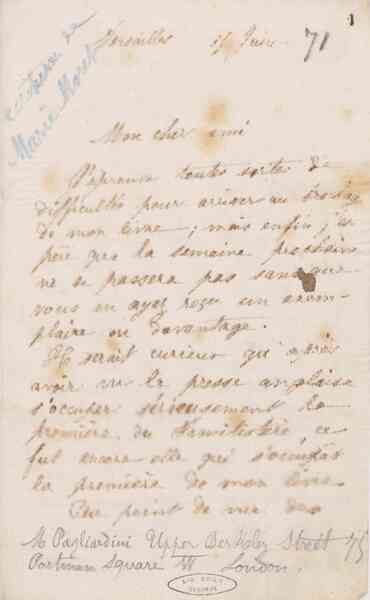 1
Versailles 15 Juin 71
écriture de
Marie Moret
Mon cher ami
J'éprouve toutes sortes de
difficultés pour arriver au brochage
de mon livre ; mais enfin, j'es
père que la semaine prochaine
ne se passera pas sans que
vous en ayez reçu un exem-
plaire ou davantage.
Il serait curieux qu'après
avoir vu la presse anglaise
s'occuper sérieusement la
première du Familistère, ce
fut encore elle qui s'occupât
la première de mon livre
Au point de vue des
M Pagliardini Upper Berkeley Street 75
Portman Square W London.